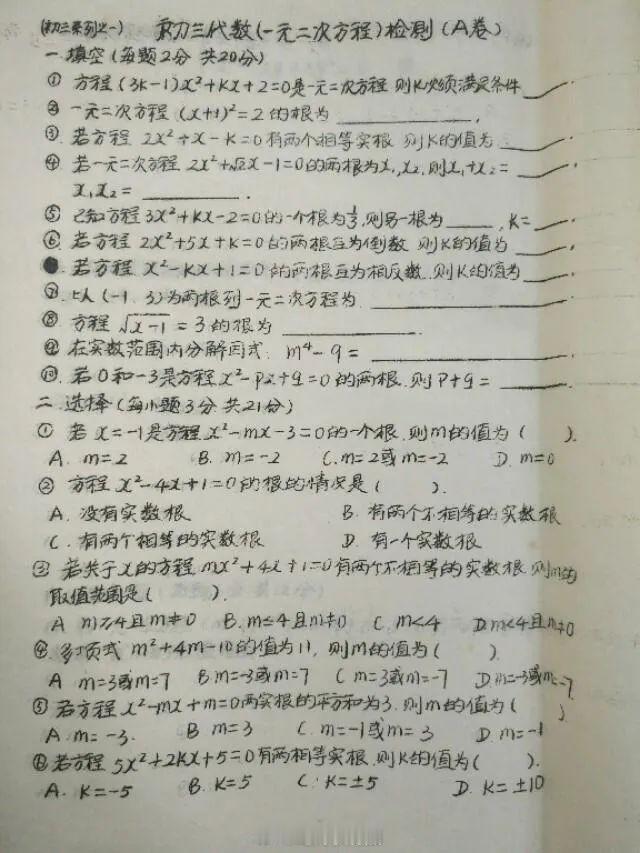 (初三系列之一) 初三代数(一元二次方程)检测(A卷)
一.填空(每题2分 共20分)
① 方程(3k-1)x²+kx+2=0是一元二次方程 则k必须满足条件____.
② 一元二次方程 (x+1)²=2的根为________.
③ 若方程 2x²+x-k=0有两个相等实根 则k的值为____.
④ 若一元二次方程 2x²+√2x-1=0的两根为x₁,x₂,则x₁+x₂=____.
x₁x₂=________.
⑤ 已知方程3x²+kx-2=0的一个根为1/3,则另一根为____,k=____.
⑥ 若方程 2x²+5x+k=0的两根互为倒数 则k的值为____.
若方程 x²-kx+1=0的两根互为相反数.则k的值为____.
⑦ 以(-1.3)为两根列一元二次方程为________.
⑧ 方程 √x-1=3的根为________.
⑨ 在实数范围内分解因式: m⁴-9=________.
⑩ 若0和-3是方程x²-px+q=0的两根.则p+q=________.
二.选择(每小题3分 共21分)
① 若 x=-1是方程x²-mx-3=0的一个根.则m的值为( ).
A. m=2 B. m=-2 C. m=2或m=-2 D. m=0
② 方程x²-4x+1=0的根的情况是( ).
A. 没有实数根 B. 有两个不相等的实数根
C. 有两个相等的实数根 D. 有一个实数根
③ 若关于x的方程mx²+4x+1=0有两个不相等的实数根 则m的
取值范围是( ).
A m≥4且m≠0 B. m≤4且m≠0 C. m<4 D. m<4且m≠0
④ 多项式m²+4m-10的值为11, 则m的值为( ).
A m=3或m=7 B. m=-3或m=7 C. m=3或m=-7 D. m=-3或m=-7
⑤ 若方程x²-mx+m=0两实根的平方和为3.则m的值为( )
A. m=-3. B m=3 C. m=-1或m=3 D. m=-1
⑥ 若方程5x²+2kx+5=0有两相等实根.则k的值为( ).
A. k=-5 B. k=5 C. k=±5 D. k=±10